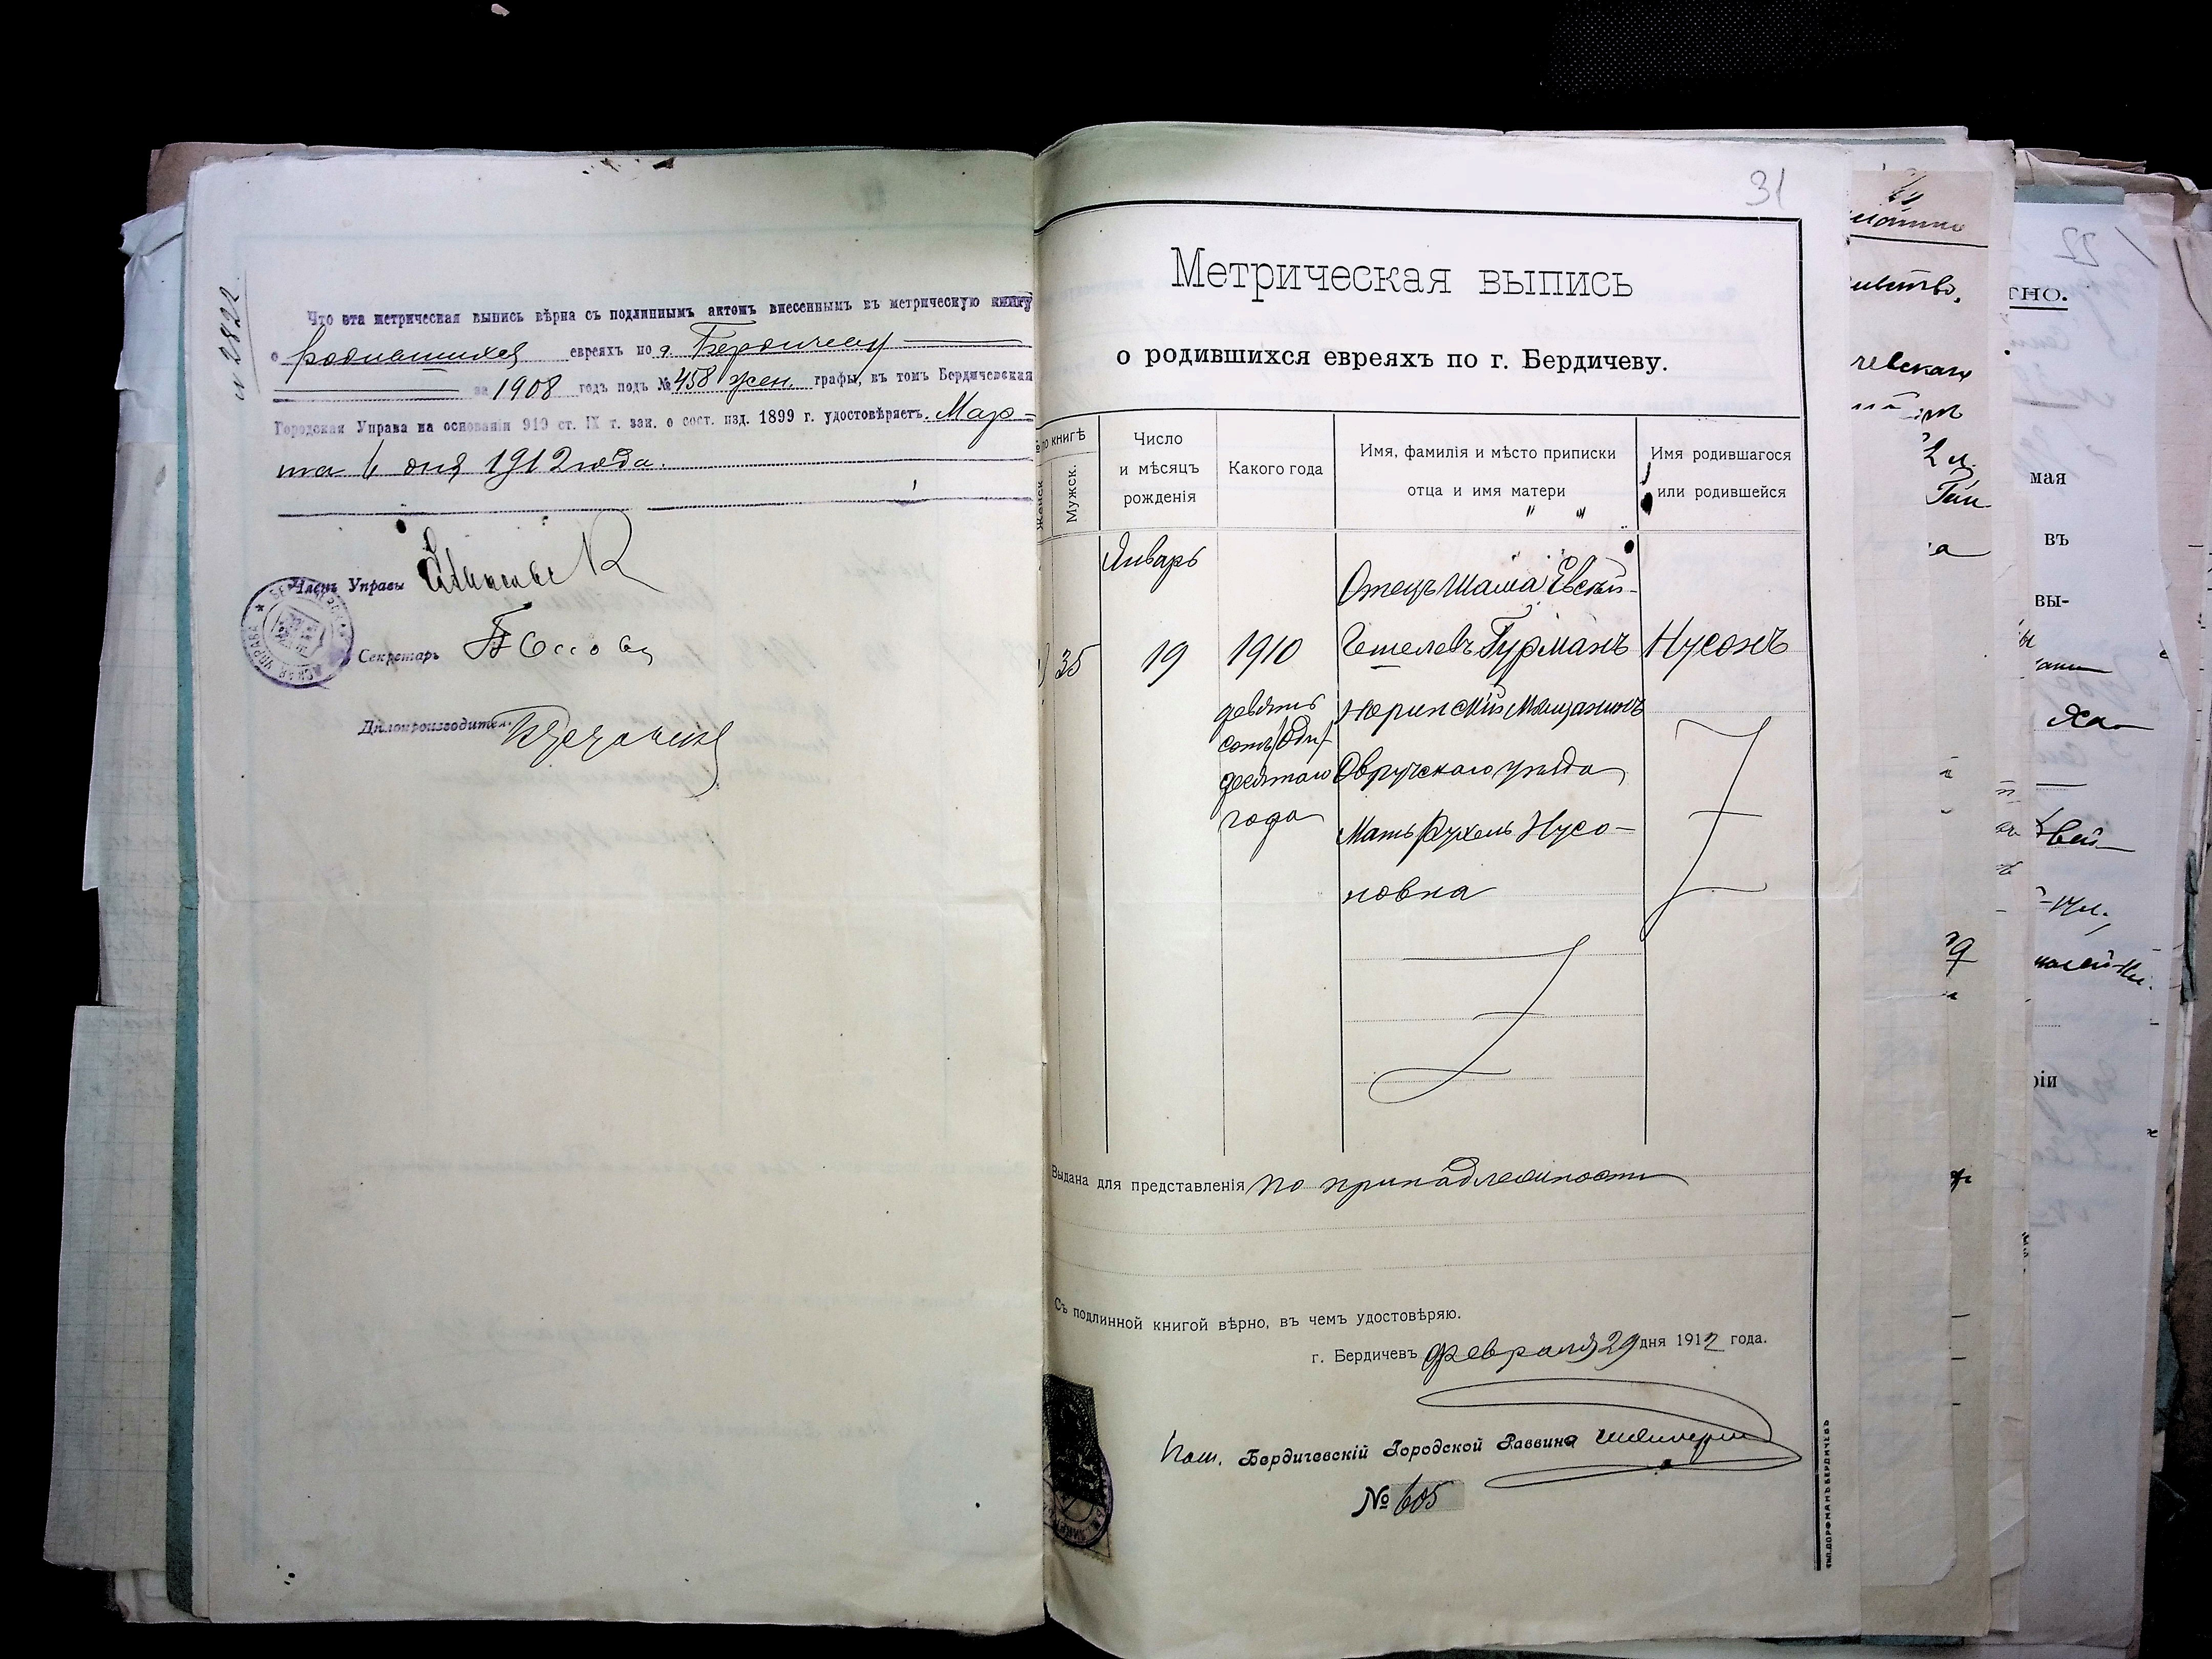 № 2822
Что эта метрическая выпись вѣрна съ подлиннымъ актомъ внесеннымъ въ метрическую книгу
о родившихся евреяхъ по г. Бердичеву
за 1908 годъ подъ № 458 жен. графы, въ томъ Бердичевская
Городская Управа на основаніи 919 ст. IX т. зак. о сост. изд. 1899 г. удостовѣряетъ. Мар-
та 6 дня 1912 года.
Членъ Управы
Секретарь
Дѣлопроизводитель
31
Метрическая выпись
о родившихся евреяхъ по г. Бердичеву.
№ по книгѣ
Женск
Мужск.
Число
и мѣсяцъ
рожденія
Какого года
Имя, фамилія и мѣсто приписки
отца и имя матери
Имя родившагося
или родившейся
Январь
35
19
1910
девять
сотъ
десятаго
года
Отецъ Шама Евсей-
Гешелевъ Гурманъ
Норинскій Мѣщанинъ
Овручскаго уѣзда
Мать Рухель Нусо-
новна
Нусонъ
Выдана для представленія по принадлежности
Съ подлинной книгой вѣрно, въ чемъ удостовѣряю.
г. Бердичевъ Февраля 29 дня 1912 года.
Пом. Бердичевскій Городской Раввина
№ 605
ТИП. ДОРФМАНЪ БЕРДИЧЕВЪ
тно.
мая
въ
вы-